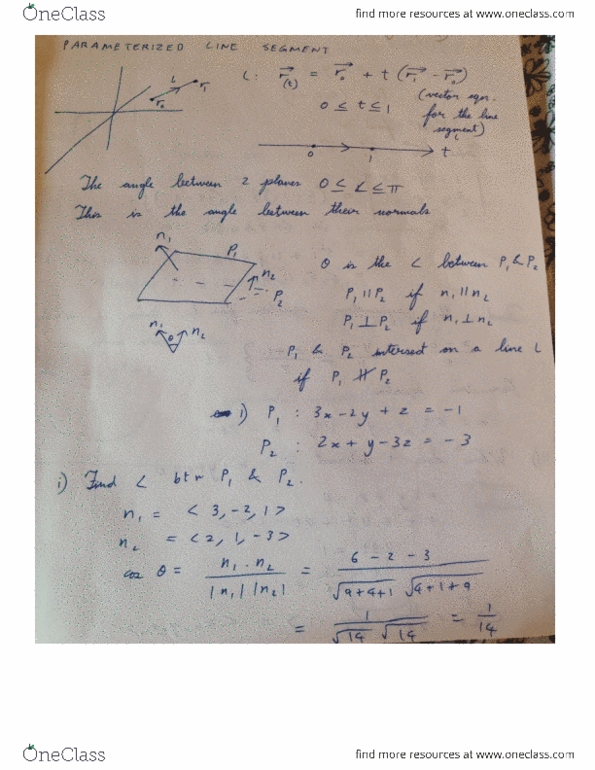 OneClass
find more resources at www.oneclass.com
PARAMETERIZED LINE SEGMENT
L: r(t) = r₀ + t (r₁ - r₀)
0 ≤ t ≤ 1
(vector eqn. for the line segment)
L
r₀
r₁
0 1 t
The angle between 2 planes 0 ≤ ∠ ≤ π
This is the angle between their normals
n₁
P₁
n₂
P₂
θ is the ∠ between P₁ & P₂
P₁ ∥ P₂ if n₁ ∥ n₂
P₁ ⊥ P₂ if n₁ ⊥ n₂
n₁ θ n₂
P₁ & P₂ intersect on a line L
if P₁ ∦ P₂
1) P₁ : 3x - 2y + z = -1
P₂ : 2x + y - 3z = -3
i) Find ∠ btw P₁ & P₂.
n₁ = < 3, -2, 1 >
n₂ = < 2, 1, -3 >
cos θ = n₁ . n₂ / |n₁| |n₂| = 6 - 2 - 3 / √9+4+1 √4+1+9
= 1 / √14 √14 = 1/14
OneClass
find more resources at www.oneclass.com